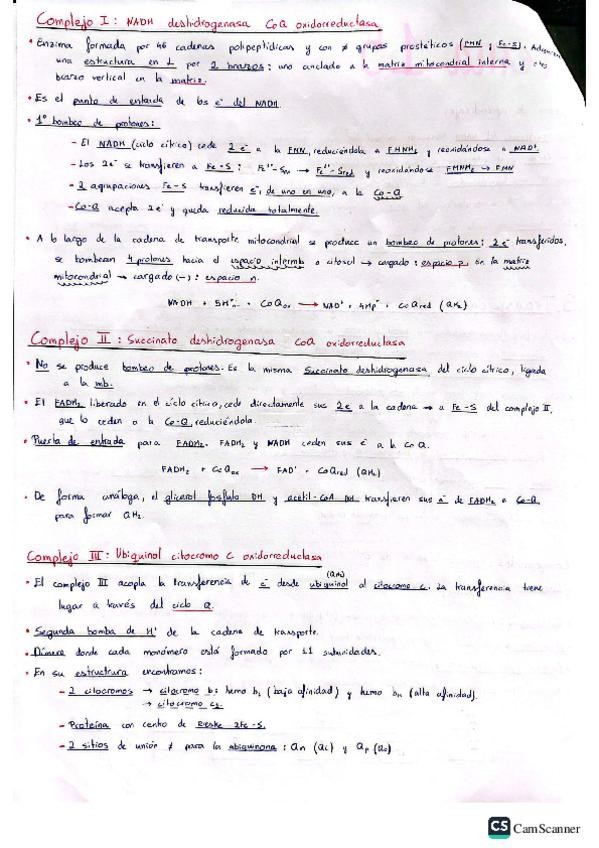 Complejo I: NADH deshidrogenasa CoQ oxidorreductasa
• Enzima formada por 46 cadenas polipeptídicas y con ≠ grupos prostéticos (FMN y Fe-S).
una estructura en L por 2 brazos: uno anclado a la matriz mitocondrial interna y otro
brazo vertical en la matriz.
• Es el punto de entrada de los e⁻ del NADH.
• 1º bombeo de protones:
- El NADH (ciclo cítrico) cede 2 e⁻ a la FMN, reduciéndola a FMNH₂ y reoxidándose a NAD⁺
- Los 2e⁻ se transfieren a Fe-S: → y reoxidándose FMNH₂ → FMN
- 2 agrupaciones Fe-S transfieren e⁻, de uno en uno, a la Co-Q
- Co-Q acepta 2e⁻ y queda reducida totalmente.
• A lo largo de la cadena de transporte mitocondrial se produce un bombeo de protones: 2 e⁻ transferidos,
se bombean 4 protones hacia el espacio intermb o citosol → cargado: espacio p, en la matriz
mitocondrial → cargado (-): espacio n.
NADH + 5H⁺ + CoQox → NAD⁺ + 4Hp⁺ + CoQred (QH₂)
Complejo II: Succinato deshidrogenasa CoQ oxidorreductasa
• No se produce bombeo de protones. Es la misma succinato deshidrogenasa del ciclo cítrico, ligada
a la mb.
• El FADH₂ liberado en el ciclo cítrico, cede directamente sus 2e⁻ a la cadena → a Fe-S del complejo II,
que lo ceden a la Co-Q, reduciéndola.
• Puerta de entrada para FADH₂. FADH₂ y NADH ceden sus e⁻ a la CoQ.
FADH₂ + CoQox → FAD⁺ + CoQred (QH₂)
• De forma análoga, el glicerol fosfato DH y acetil-CoA DH transfieren sus e⁻ de FADH₂ a Co-Q
para formar QH₂.
Complejo III: Ubiquinol citocromo c oxidorreductasa
(QH₂)
• El complejo III acopla la transferencia de e⁻ desde ubiquinol al citocromo c. La transferencia tiene
lugar a través del ciclo Q.
• Segunda bomba de H⁺ de la cadena de transporte.
• Dímero donde cada monómero está formado por 11 subunidades.
• En su estructura encontramos:
- 2 citocromos → citocromo b: hemo bL (baja afinidad) y hemo bH (alta afinidad).
→ citocromo c₁.
- Proteína con centro de Rieske 2Fe-S.
- 2 sitios de unión ≠ para la ubiquinona: Qn (Qi) y Qp (Qo)
CS CamScanner